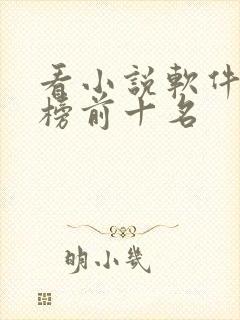 看小說軟件
榜前十名
明小幾